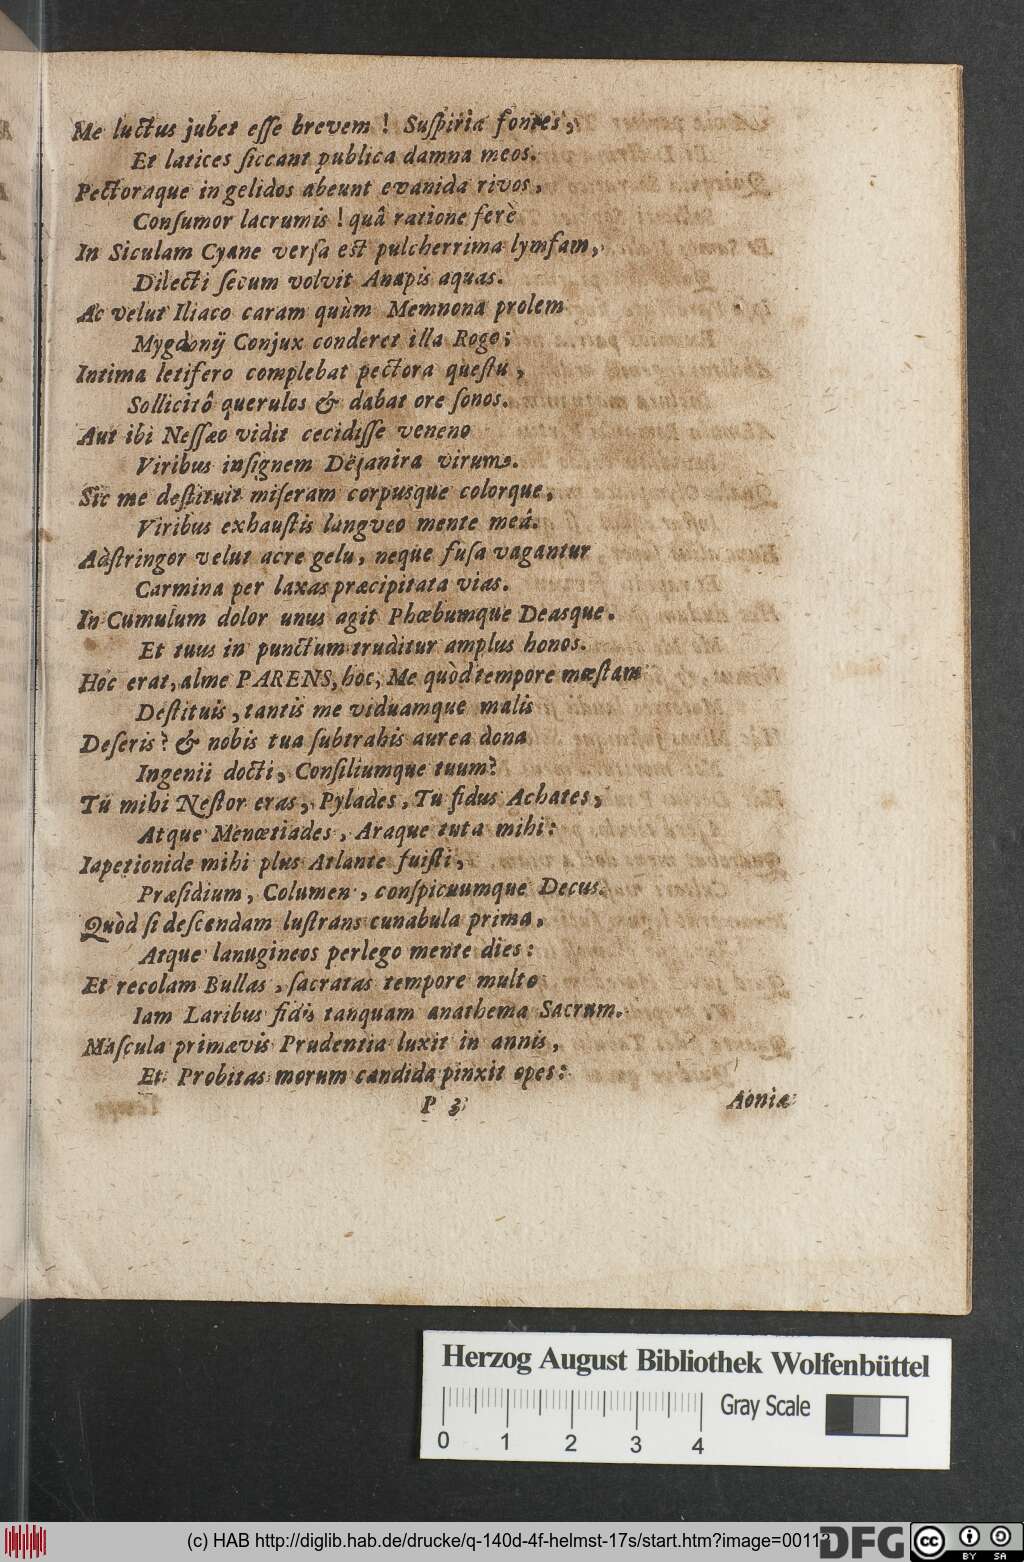 Me luctus jubet eſſe brevem ! Suſpiria fontes,
Et latices ſiccant publica damna meos.
Pectoraque in gelidos abeunt evanida rivos,
Conſumor lacrumis ! quâ ratione ferè
In Siculam Cyane verſa est pulcherrima lymfam,
Dilecti ſecum volvit Anapis aquas.
Ac velut Iliaco caram quùm Memnona prolem
Mygdonij Conjux conderet illa Rogo;
Intima letifero complebat pectora queſtu,
Sollicitô querulos & dabat ore ſonos.
Aut ibi Neſſæo vidit cecidiſſe veneno
Viribus inſignem Dëjanira virum.
Sic me deſtituit miſeram corpusque colorque,
Viribus exhauſtis langveo mente meâ.
Adſtringor velut acre gelu, neque fuſa vagantur
Carmina per laxas præcipitata vias.
In Cumulum dolor unus agit Phœbumque Deasque.
Et tuus in punctum truditur amplus honos.
Hoc erat, alme PARENS, hoc, Me quòd tempore mæſtam
Deſtituis, tantis me viduamque malis
Deſeris? & nobis tua ſubtrahis aurea dona
Ingenii docti, Conſiliumque tuum?
Tu mihi Neſtor eras, Pylades, Tu fidus Achates,
Atque Menœtiades, Araque tuta mihi:
Iapetionide mihi plus Atlante fuiſti,
Præſidium, Columen, conſpicuumque Decus.
Quòd ſi deſcendam luſtrans cunabula prima,
Atque lanugineos perlego mente dies:
Et recolam Bullas, ſacratas tempore multo
Iam Laribus fidis tanquam anathema Sacrum.
Maſcula primævis Prudentia luxit in annis,
Et Probitas morum candida pinxit opes:
P 3
Aoniæ
Herzog August Bibliothek Wolfenbüttel
Gray Scale
0 1 2 3 4
(c) HAB http://diglib.hab.de/drucke/q-140d-4f-helmst-17s/start.htm?image=0011
DFG
cc BY SA